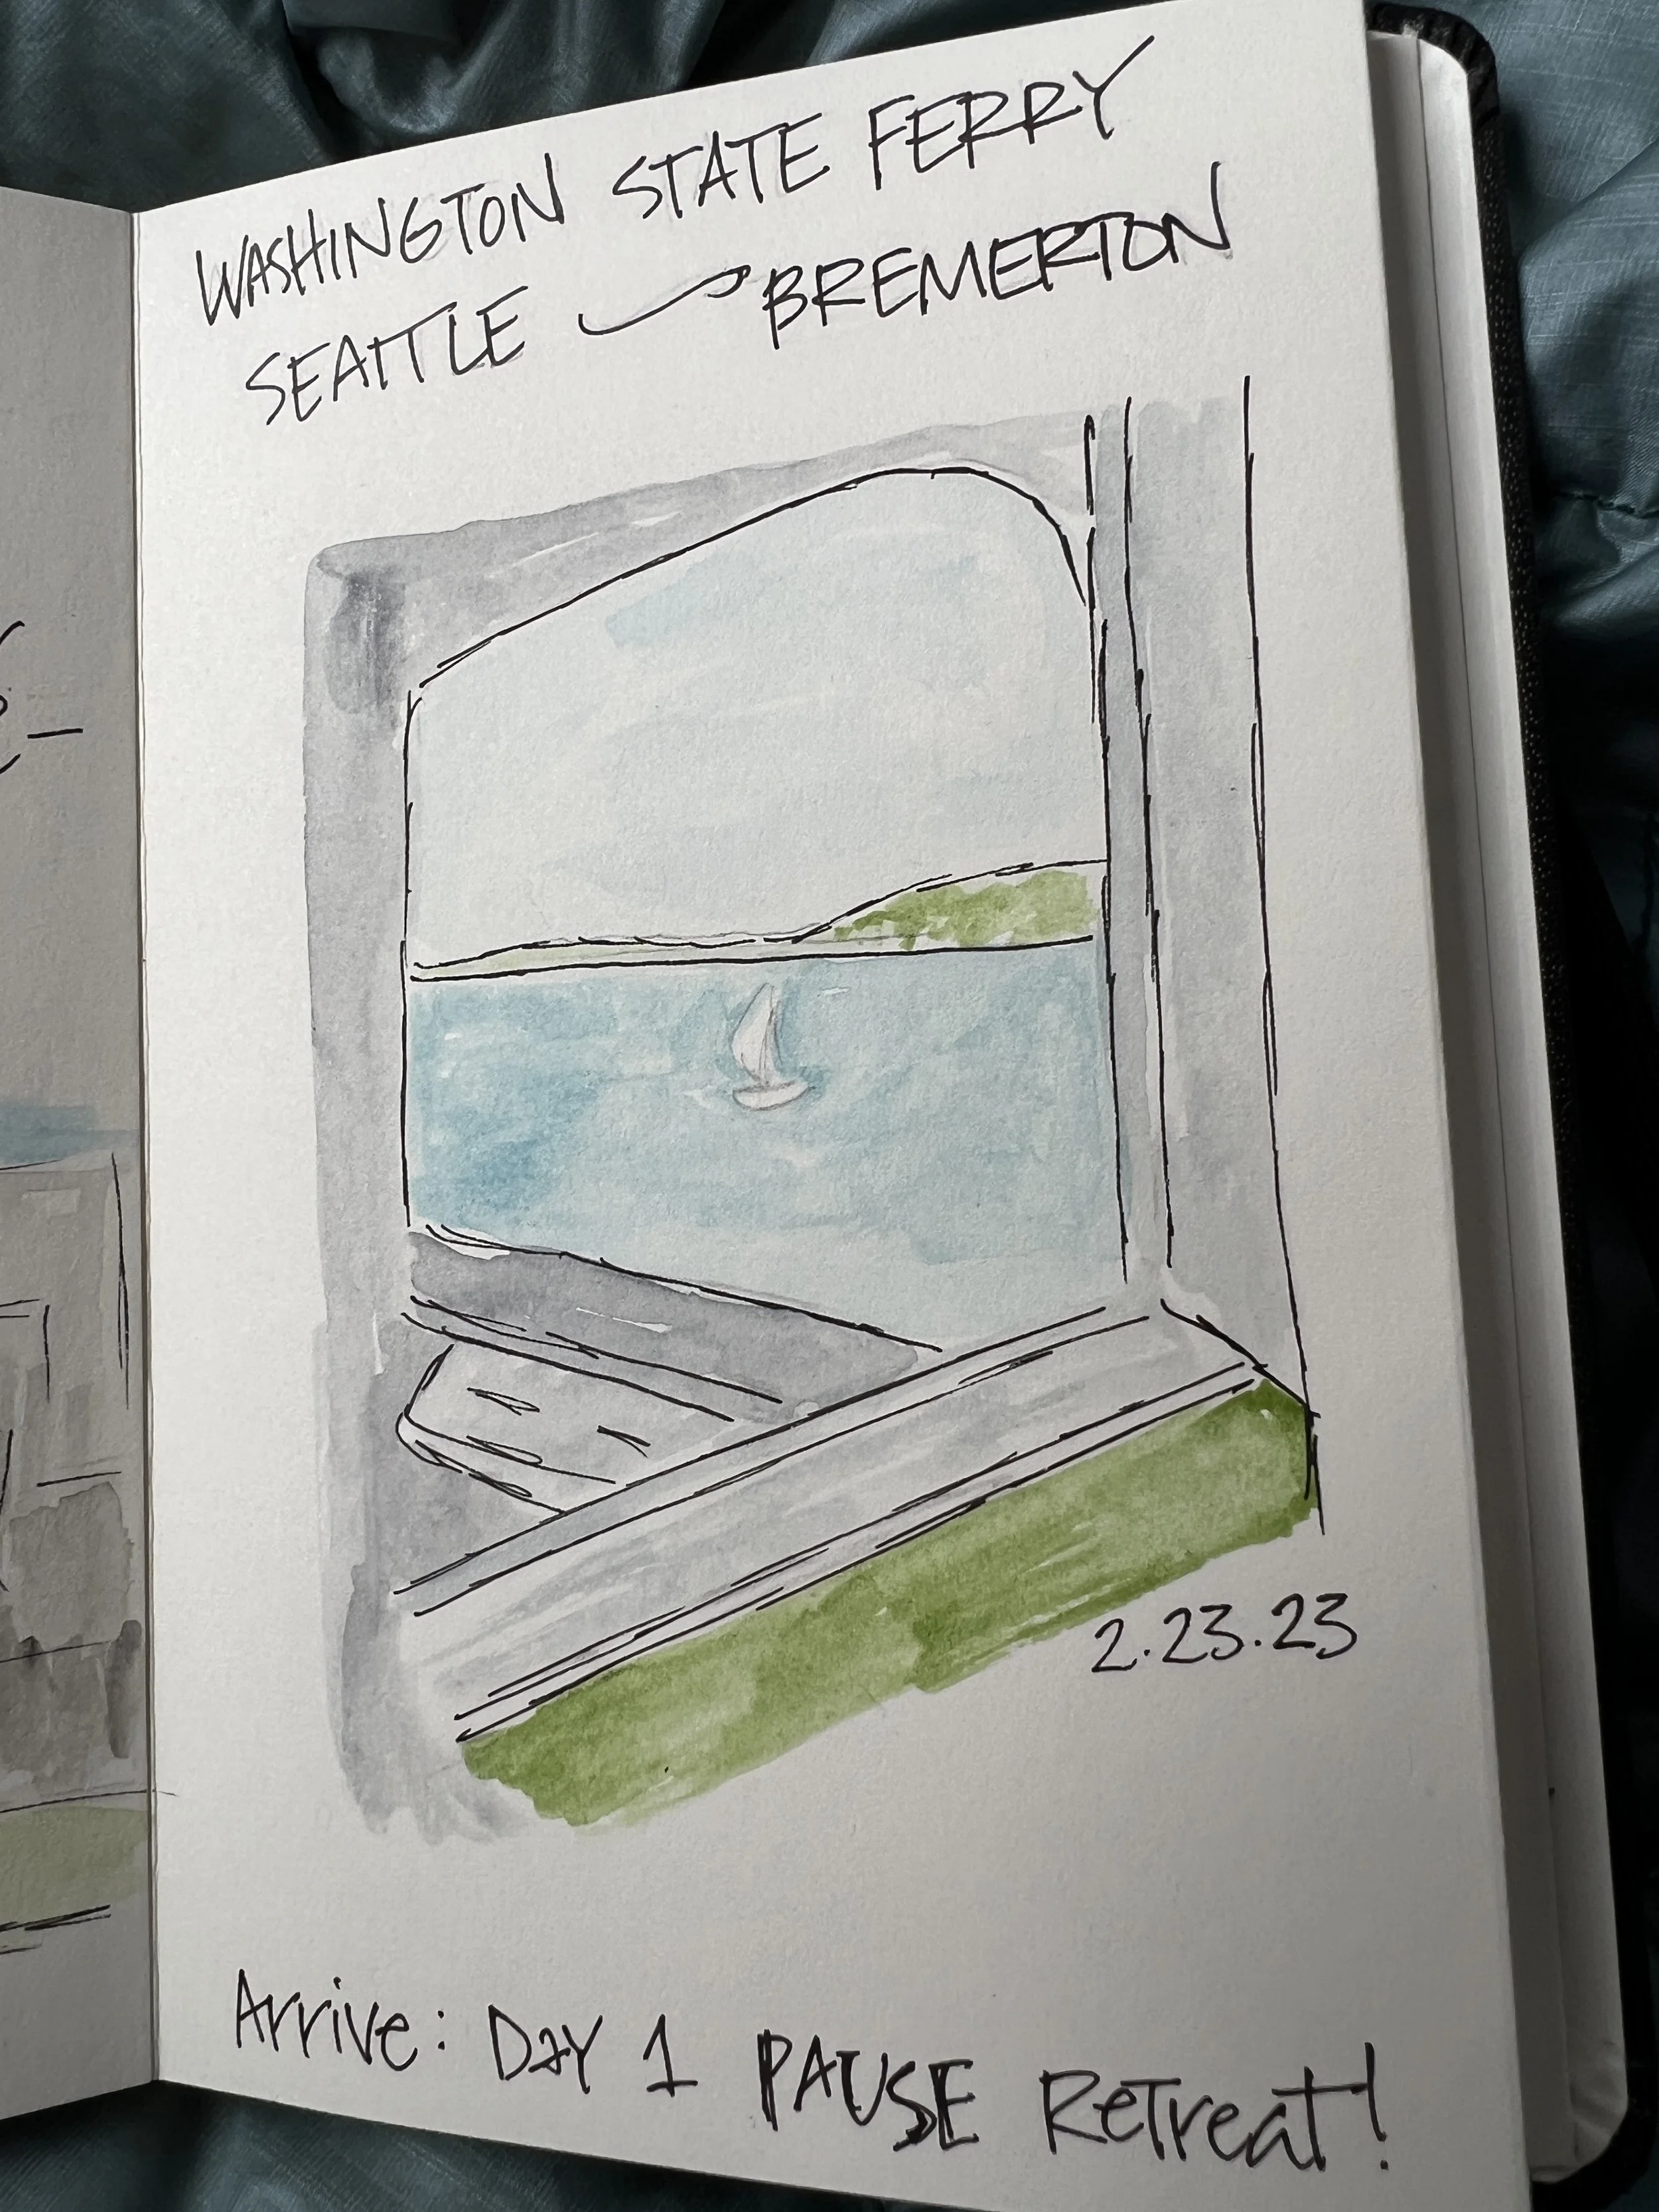 WASHINGTON STATE FERRY
SEATTLE BREMERTON
2.23.23
Arrive: DAY 1 PAUSE Retreat!